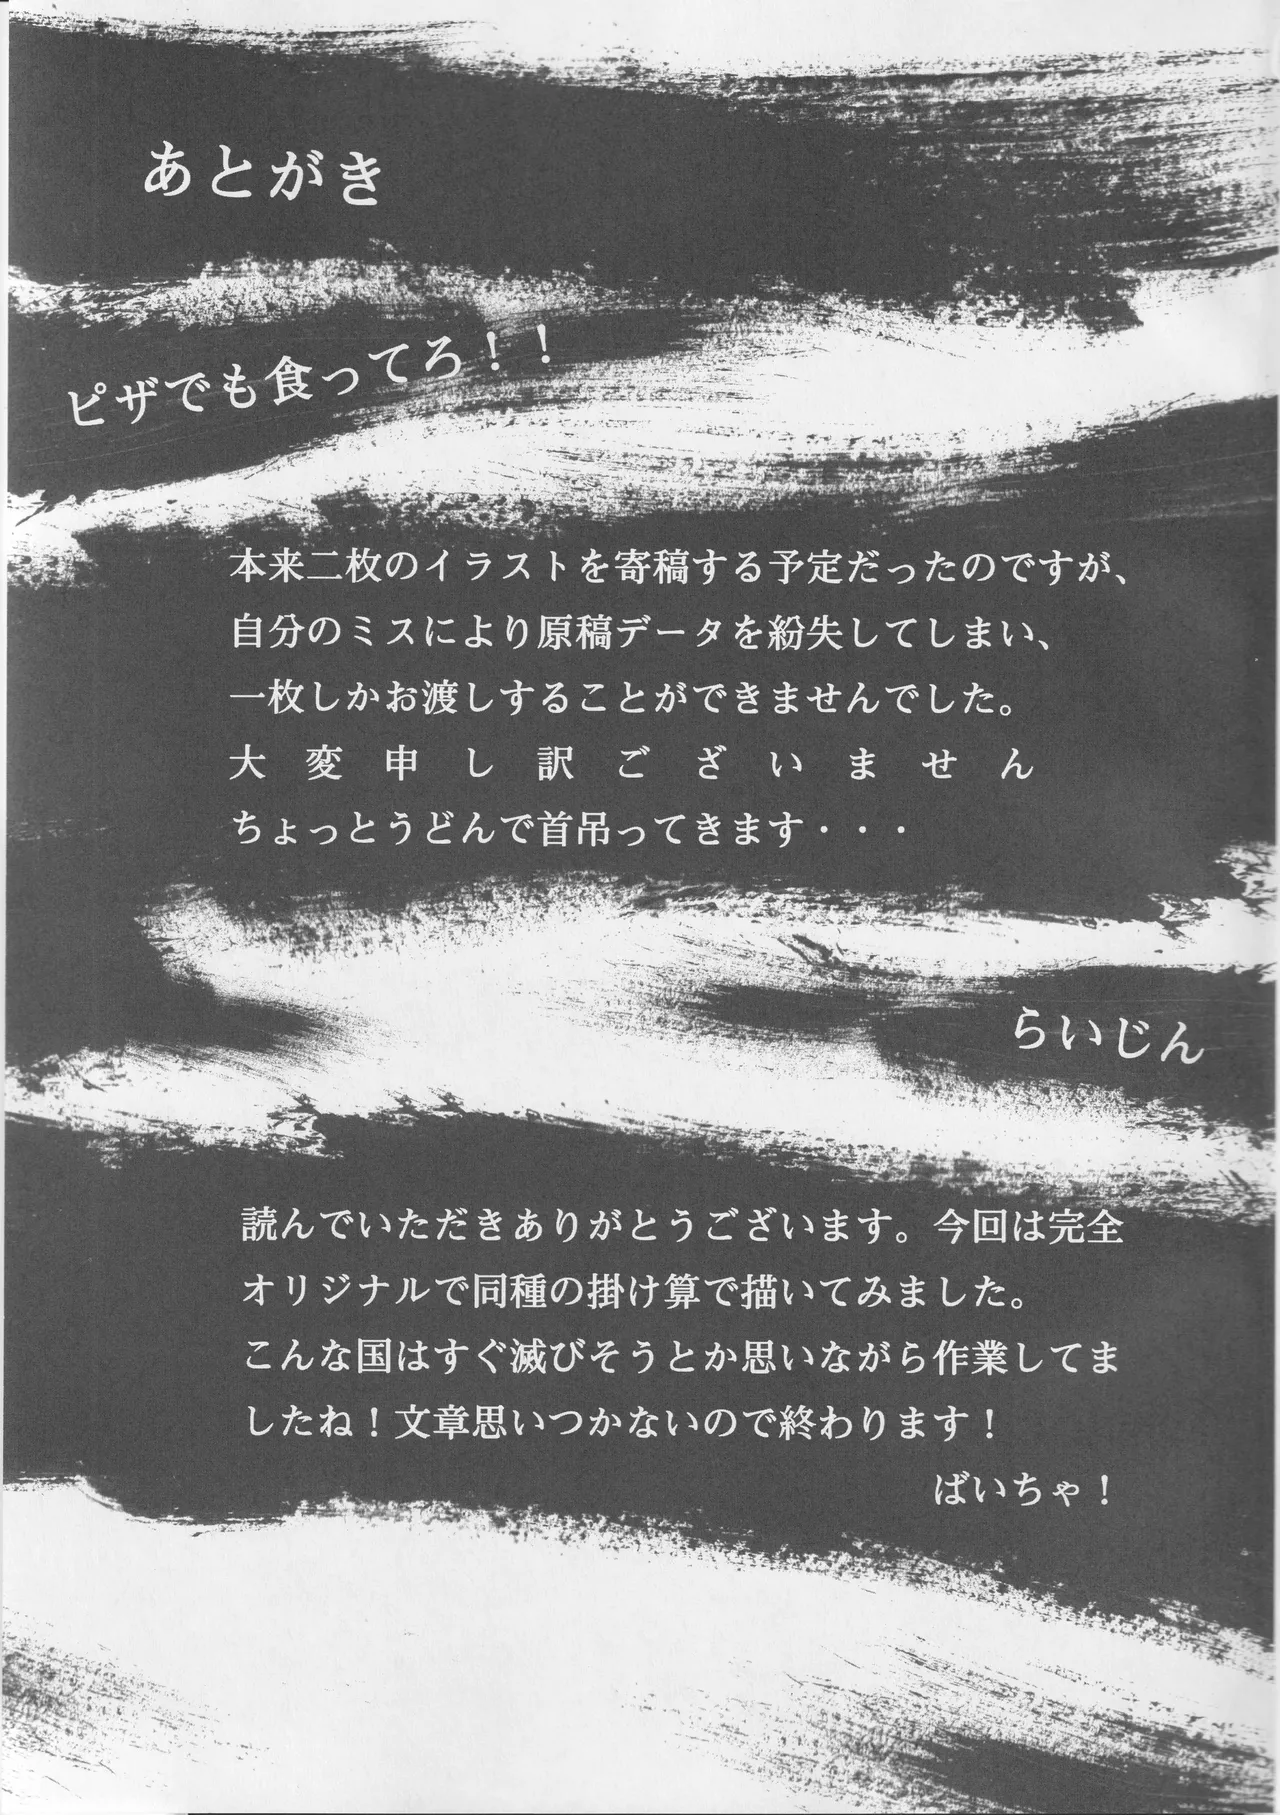 あとがき
ピザでも食ってろ！！
本来二枚のイラストを寄稿する予定だったのですが、
自分のミスにより原稿データを紛失してしまい、
一枚しかお渡しすることができませんでした。
大変申し訳ございません
ちょっとうどんで首吊ってきます・・・
らいじん
読んでいただきありがとうございます。今回は完全
オリジナルで同種の掛け算で描いてみました。
こんな国はすぐ滅びそうとか思いながら作業してま
したね！文章思いつかないので終わります！
ばいちゃ！